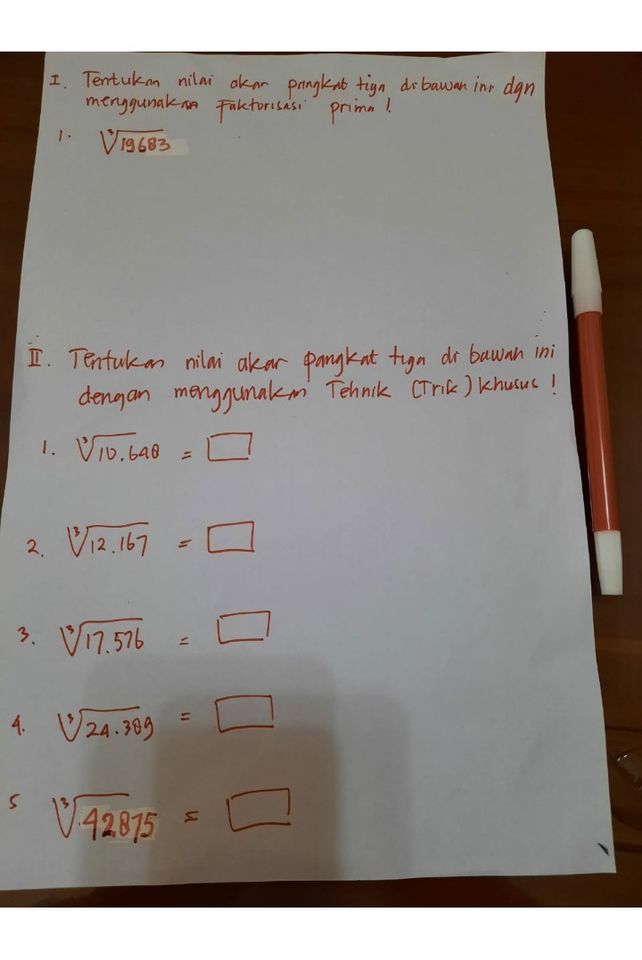 I. Tentukan nilai akar pangkat tiga di bawah ini dgn
menggunakan Faktorisasi prima!
1. ∛19683
II. Tentukan nilai akar pangkat tiga di bawah ini
dengan menggunakan Tehnik (Trik) khusus!
1. ∛10.648 = □
2. ∛12.167 = □
3. ∛17.576 = □
4. ∛24.389 = □
5 ∛42875 = □